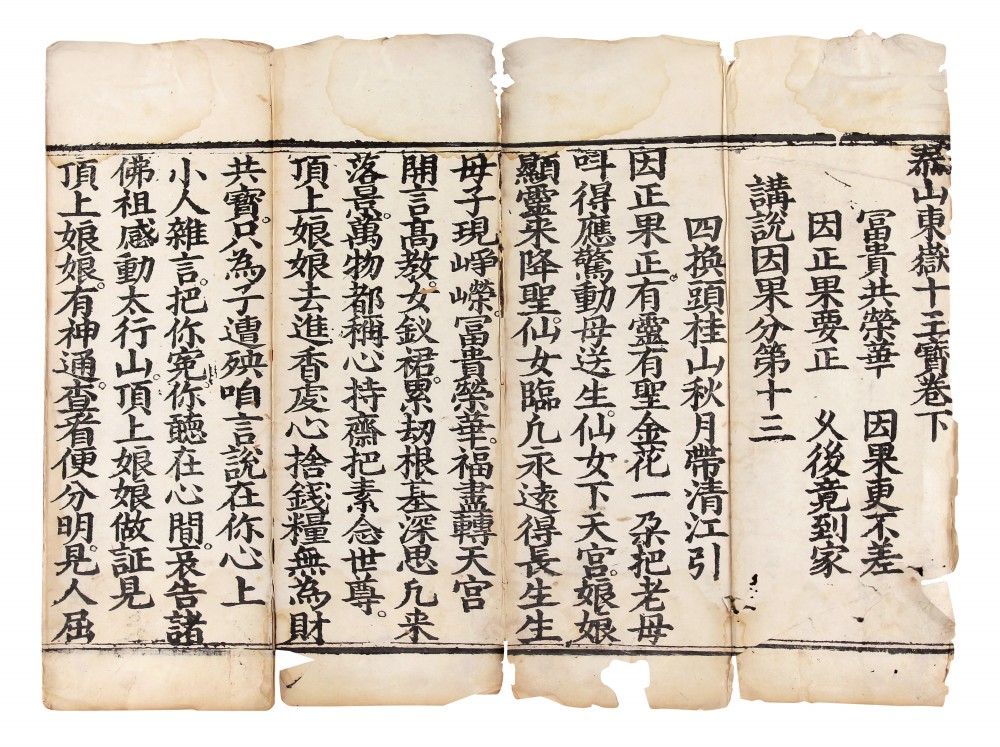 泰山東嶽十王寶卷下
冨貴共榮華 因果更不差
因正果要正 久後竟到家
講說因果分第十三
四換頭桂山秋月帶清江引
因正果正有靈有聖金花一朶把老母
呌得應驚動母送生仙女下天宮。娘娘
顯靈来降聖。仙女臨凢永遠得長生生
母子現崢嶸。冨貴榮華。福盡轉天宮
開言髙教。女釵裙。累刼根基深思凢来
落景。萬物都稱心持齋把素念世尊。
頂上娘娘去進香處心捨錢糧無為財
共寶。只為子遭殃咱言說在你心上
小人雜言。把你冤。你聽在心間。哀告諸
佛祖感動太行山。頂上娘娘做証見
頂上娘娘。有神通。查看便分明。見人屈